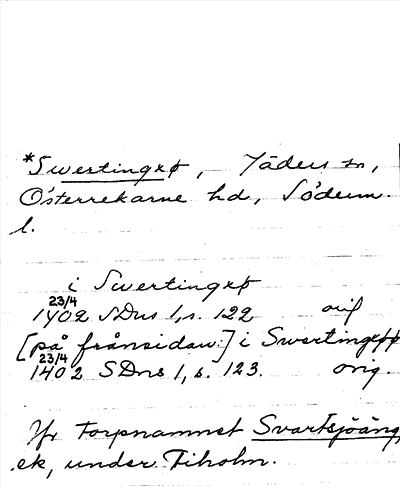 *Swertingxø, Jäders sn,
Österrekarne hd, Söderm.
l.
i Swertingxø
23/4
1402 SDns 1, s. 122 orig
[på frånsidan:] i Swertingxøø
23/4
1402 SDns 1, s. 123. orig.
Jfr torpnamnet Svartsjöäng,
ek, under Fiholm.